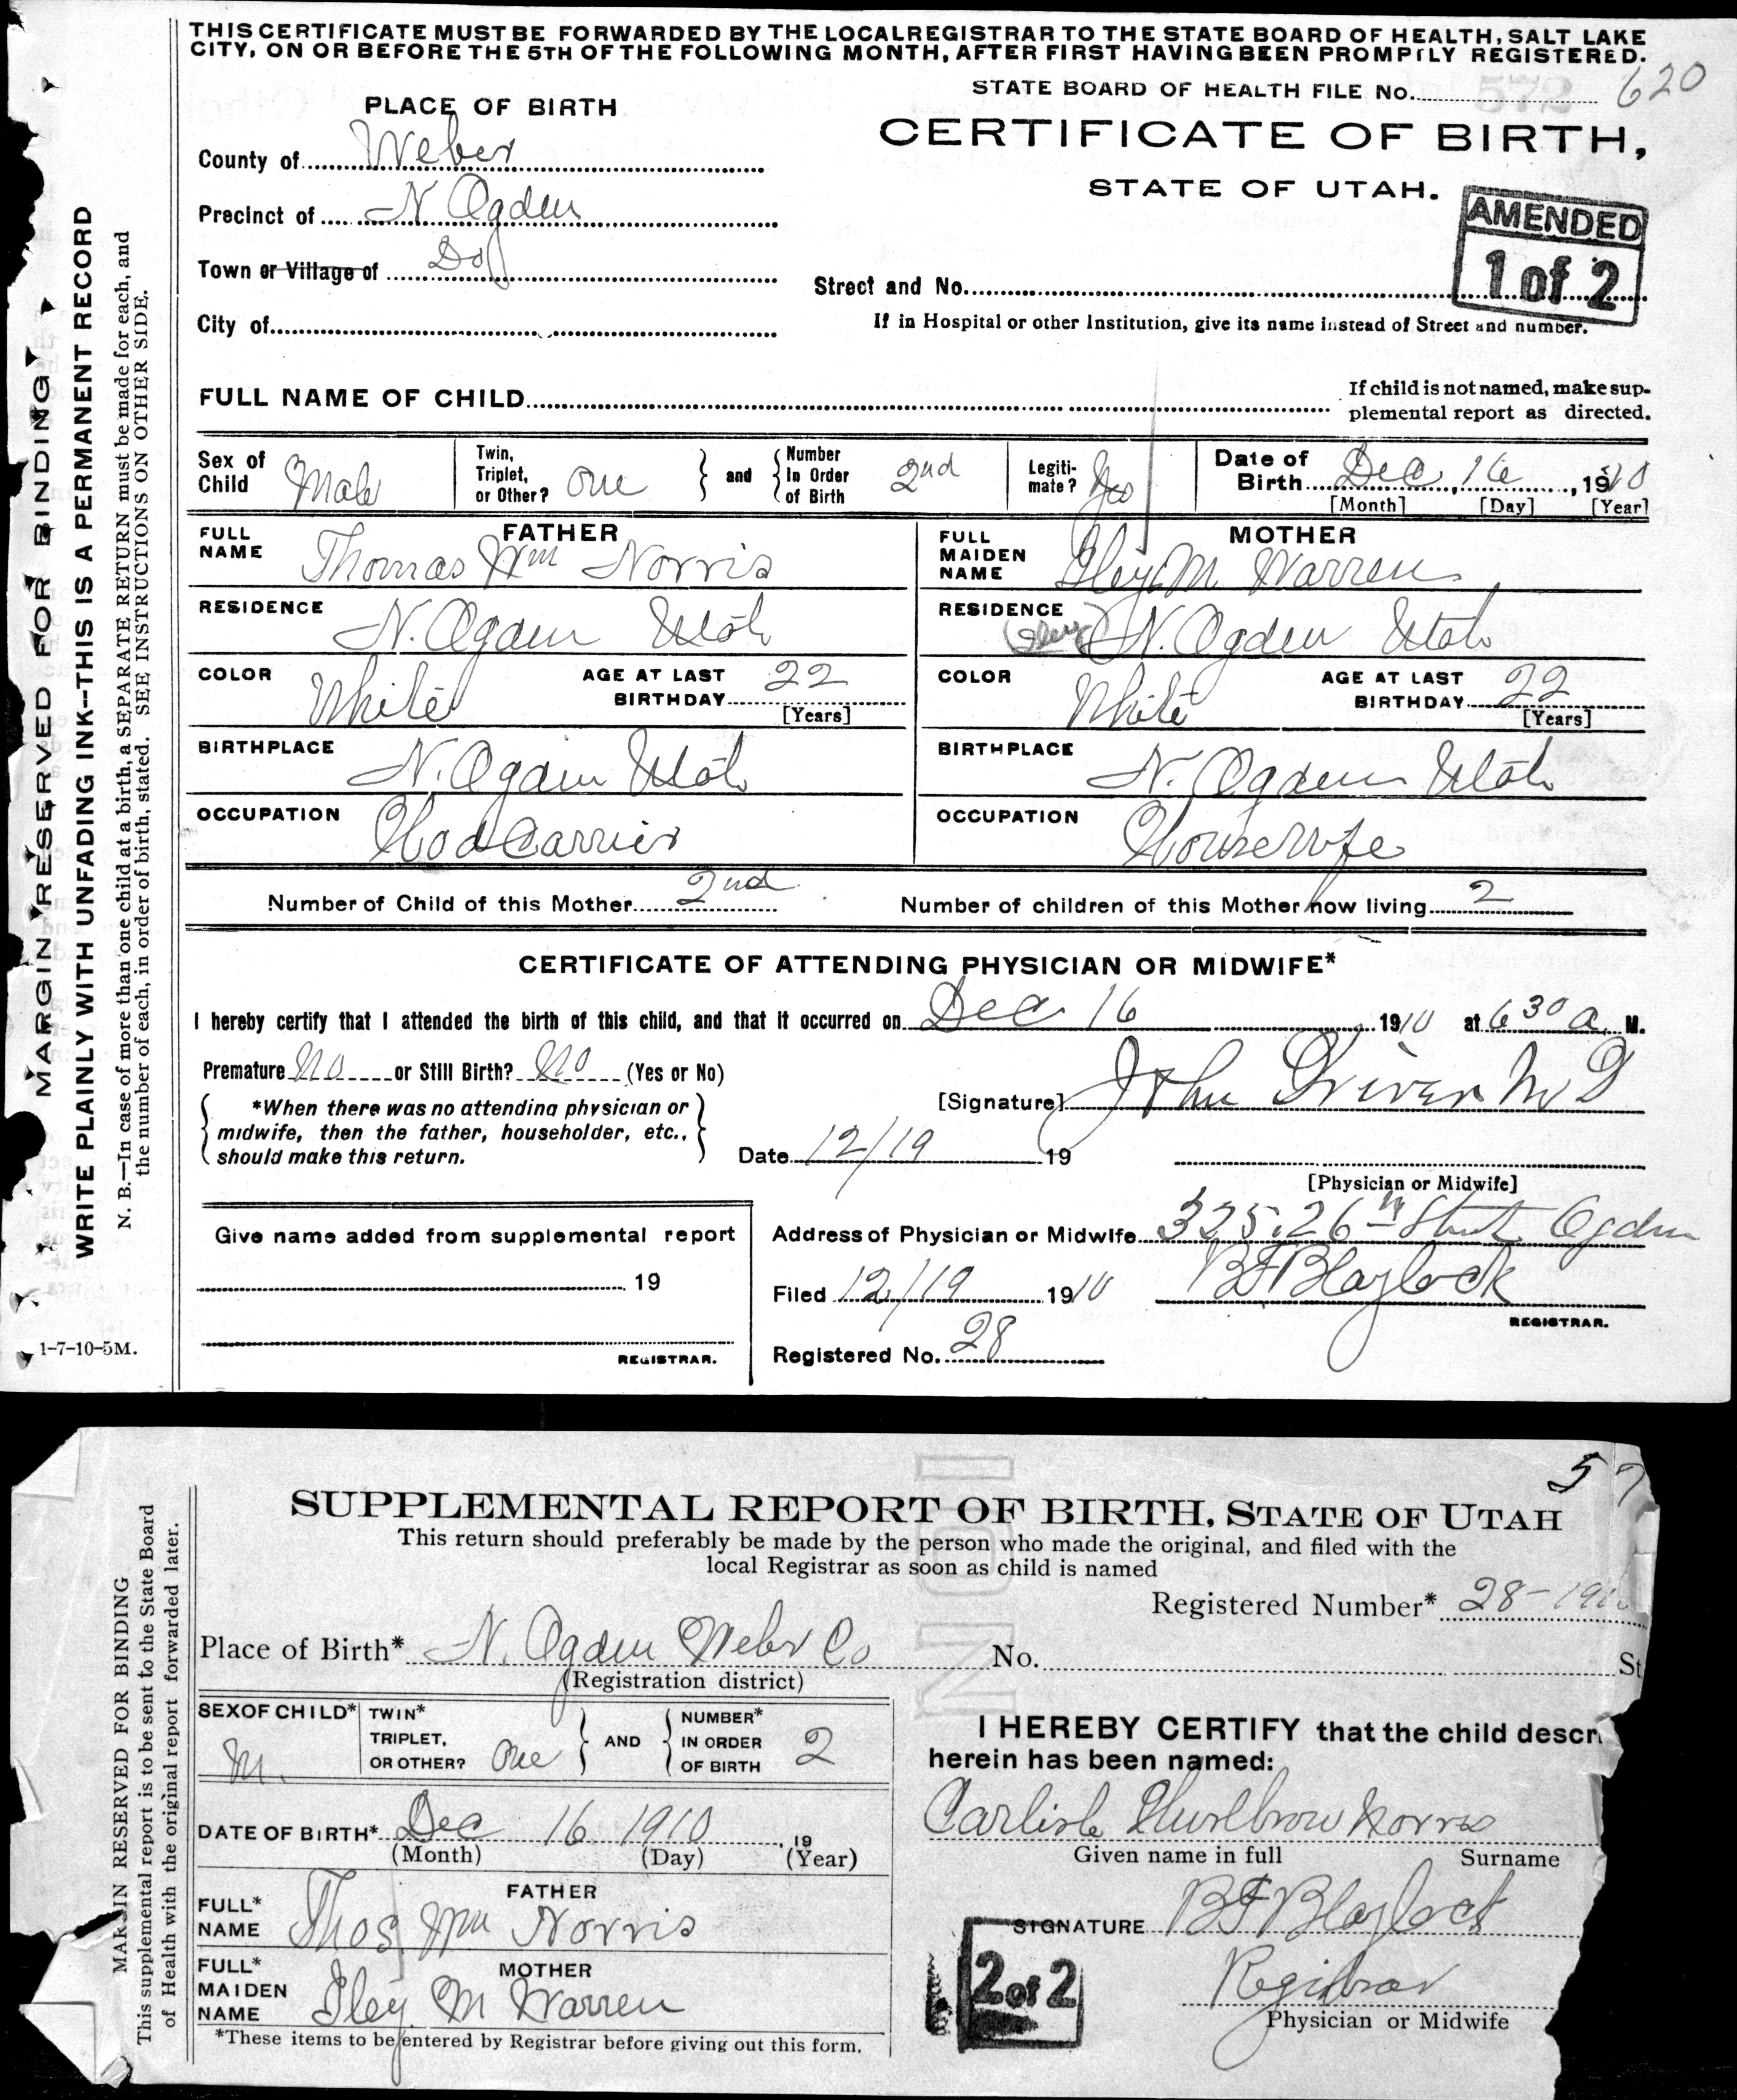 THIS CERTIFICATE MUST BE FORWARDED BY THE LOCAL REGISTRAR TO THE STATE BOARD OF HEALTH, SALT LAKE
CITY, ON OR BEFORE THE 5TH OF THE FOLLOWING MONTH, AFTER FIRST HAVING BEEN PROMPTLY REGISTERED.
STATE BOARD OF HEALTH FILE No. 572 620
PLACE OF BIRTH
CERTIFICATE OF BIRTH,
STATE OF UTAH.
AMENDED
1 of 2
County of Weber
Precinct of N Ogden
Town or Village of Do
Street and No.
City of
If in Hospital or other Institution, give its name instead of Street and number.
FULL NAME OF CHILD
If child is not named, make sup-
plemental report as directed.
Sex of Child Male
Twin, Triplet, or Other? One and Number In Order of Birth 2nd
Legiti-mate? Yes
Date of Birth Dec, 16, 1910
[Month] [Day] [Year]
FATHER
FULL NAME Thomas Wm Norris
MOTHER
FULL MAIDEN NAME M Warren
RESIDENCE N. Ogden Utah
RESIDENCE N. Ogden Utah
COLOR White AGE AT LAST BIRTHDAY 22 [Years]
COLOR White AGE AT LAST BIRTHDAY 22 [Years]
BIRTHPLACE N. Ogden Utah
BIRTHPLACE N. Ogden Utah
OCCUPATION Hod Carrier
OCCUPATION Housewife
Number of Child of this Mother 2nd Number of children of this Mother now living 2
CERTIFICATE OF ATTENDING PHYSICIAN OR MIDWIFE*
I hereby certify that I attended the birth of this child, and that it occurred on Dec 16 1910 at 6 30 a M.
Premature No or Still Birth? No (Yes or No)
*When there was no attending physician or
midwife, then the father, householder, etc.,
should make this return.
[Signature] John Driver M D
Date 12/19 19
[Physician or Midwife]
Give name added from supplemental report
19
REGISTRAR.
Address of Physician or Midwife 325. 26th Street Ogden
Filed 12/19 1910 BF Blaylock
REGISTRAR.
Registered No. 28
MARGIN RESERVED FOR BINDING
WRITE PLAINLY WITH UNFADING INK--THIS IS A PERMANENT RECORD
N. B.—In case of more than one child at a birth, a SEPARATE RETURN must be made for each, and
the number of each, in order of birth, stated. SEE INSTRUCTIONS ON OTHER SIDE.
1-7-10-5M.
57
SUPPLEMENTAL REPORT OF BIRTH, STATE OF UTAH
This return should preferably be made by the person who made the original, and filed with the
local Registrar as soon as child is named
Registered Number* 28-1910
Place of Birth* N. Ogden Weber Co No. St
(Registration district)
SEX OF CHILD* M.
TWIN* TRIPLET, OR OTHER? One AND NUMBER* IN ORDER OF BIRTH 2
I HEREBY CERTIFY that the child descri
herein has been named:
DATE OF BIRTH* Dec 16 1910, 19
(Month) (Day) (Year)
Carlisle Norris
Given name in full Surname
FATHER
FULL* NAME Thos Wm Norris
SIGNATURE BF Blaylock
MOTHER
FULL* MAIDEN NAME M Warren
Registrar
Physician or Midwife
2 of 2
*These items to be entered by Registrar before giving out this form.
MARGIN RESERVED FOR BINDING
This supplemental report is to be sent to the State Board
of Health with the original report forwarded later.